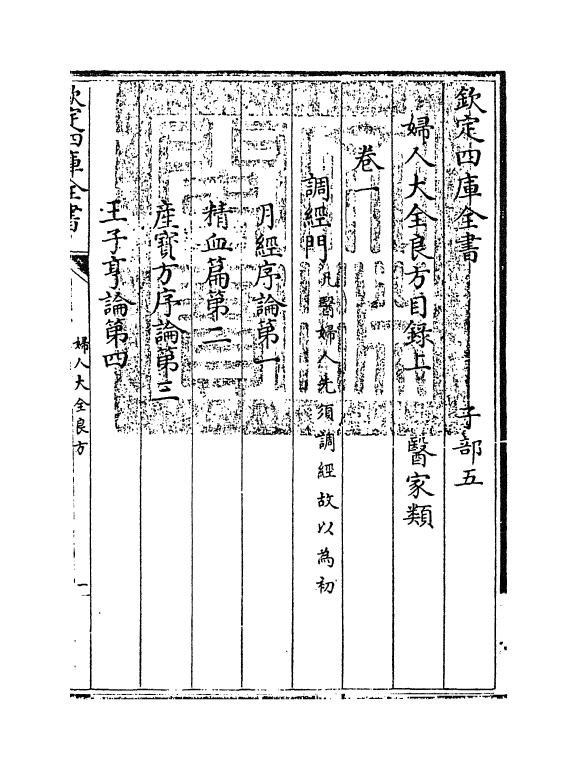 欽定四庫全書　子部五
婦人大全良方目錄上　醫家類
卷一
調經門凡醫婦人先須調經故以為初
月經序論第一
精血篇第二
產寶方序論第三
王子亨論第四
欽定四庫全書　婦人大全良方　一